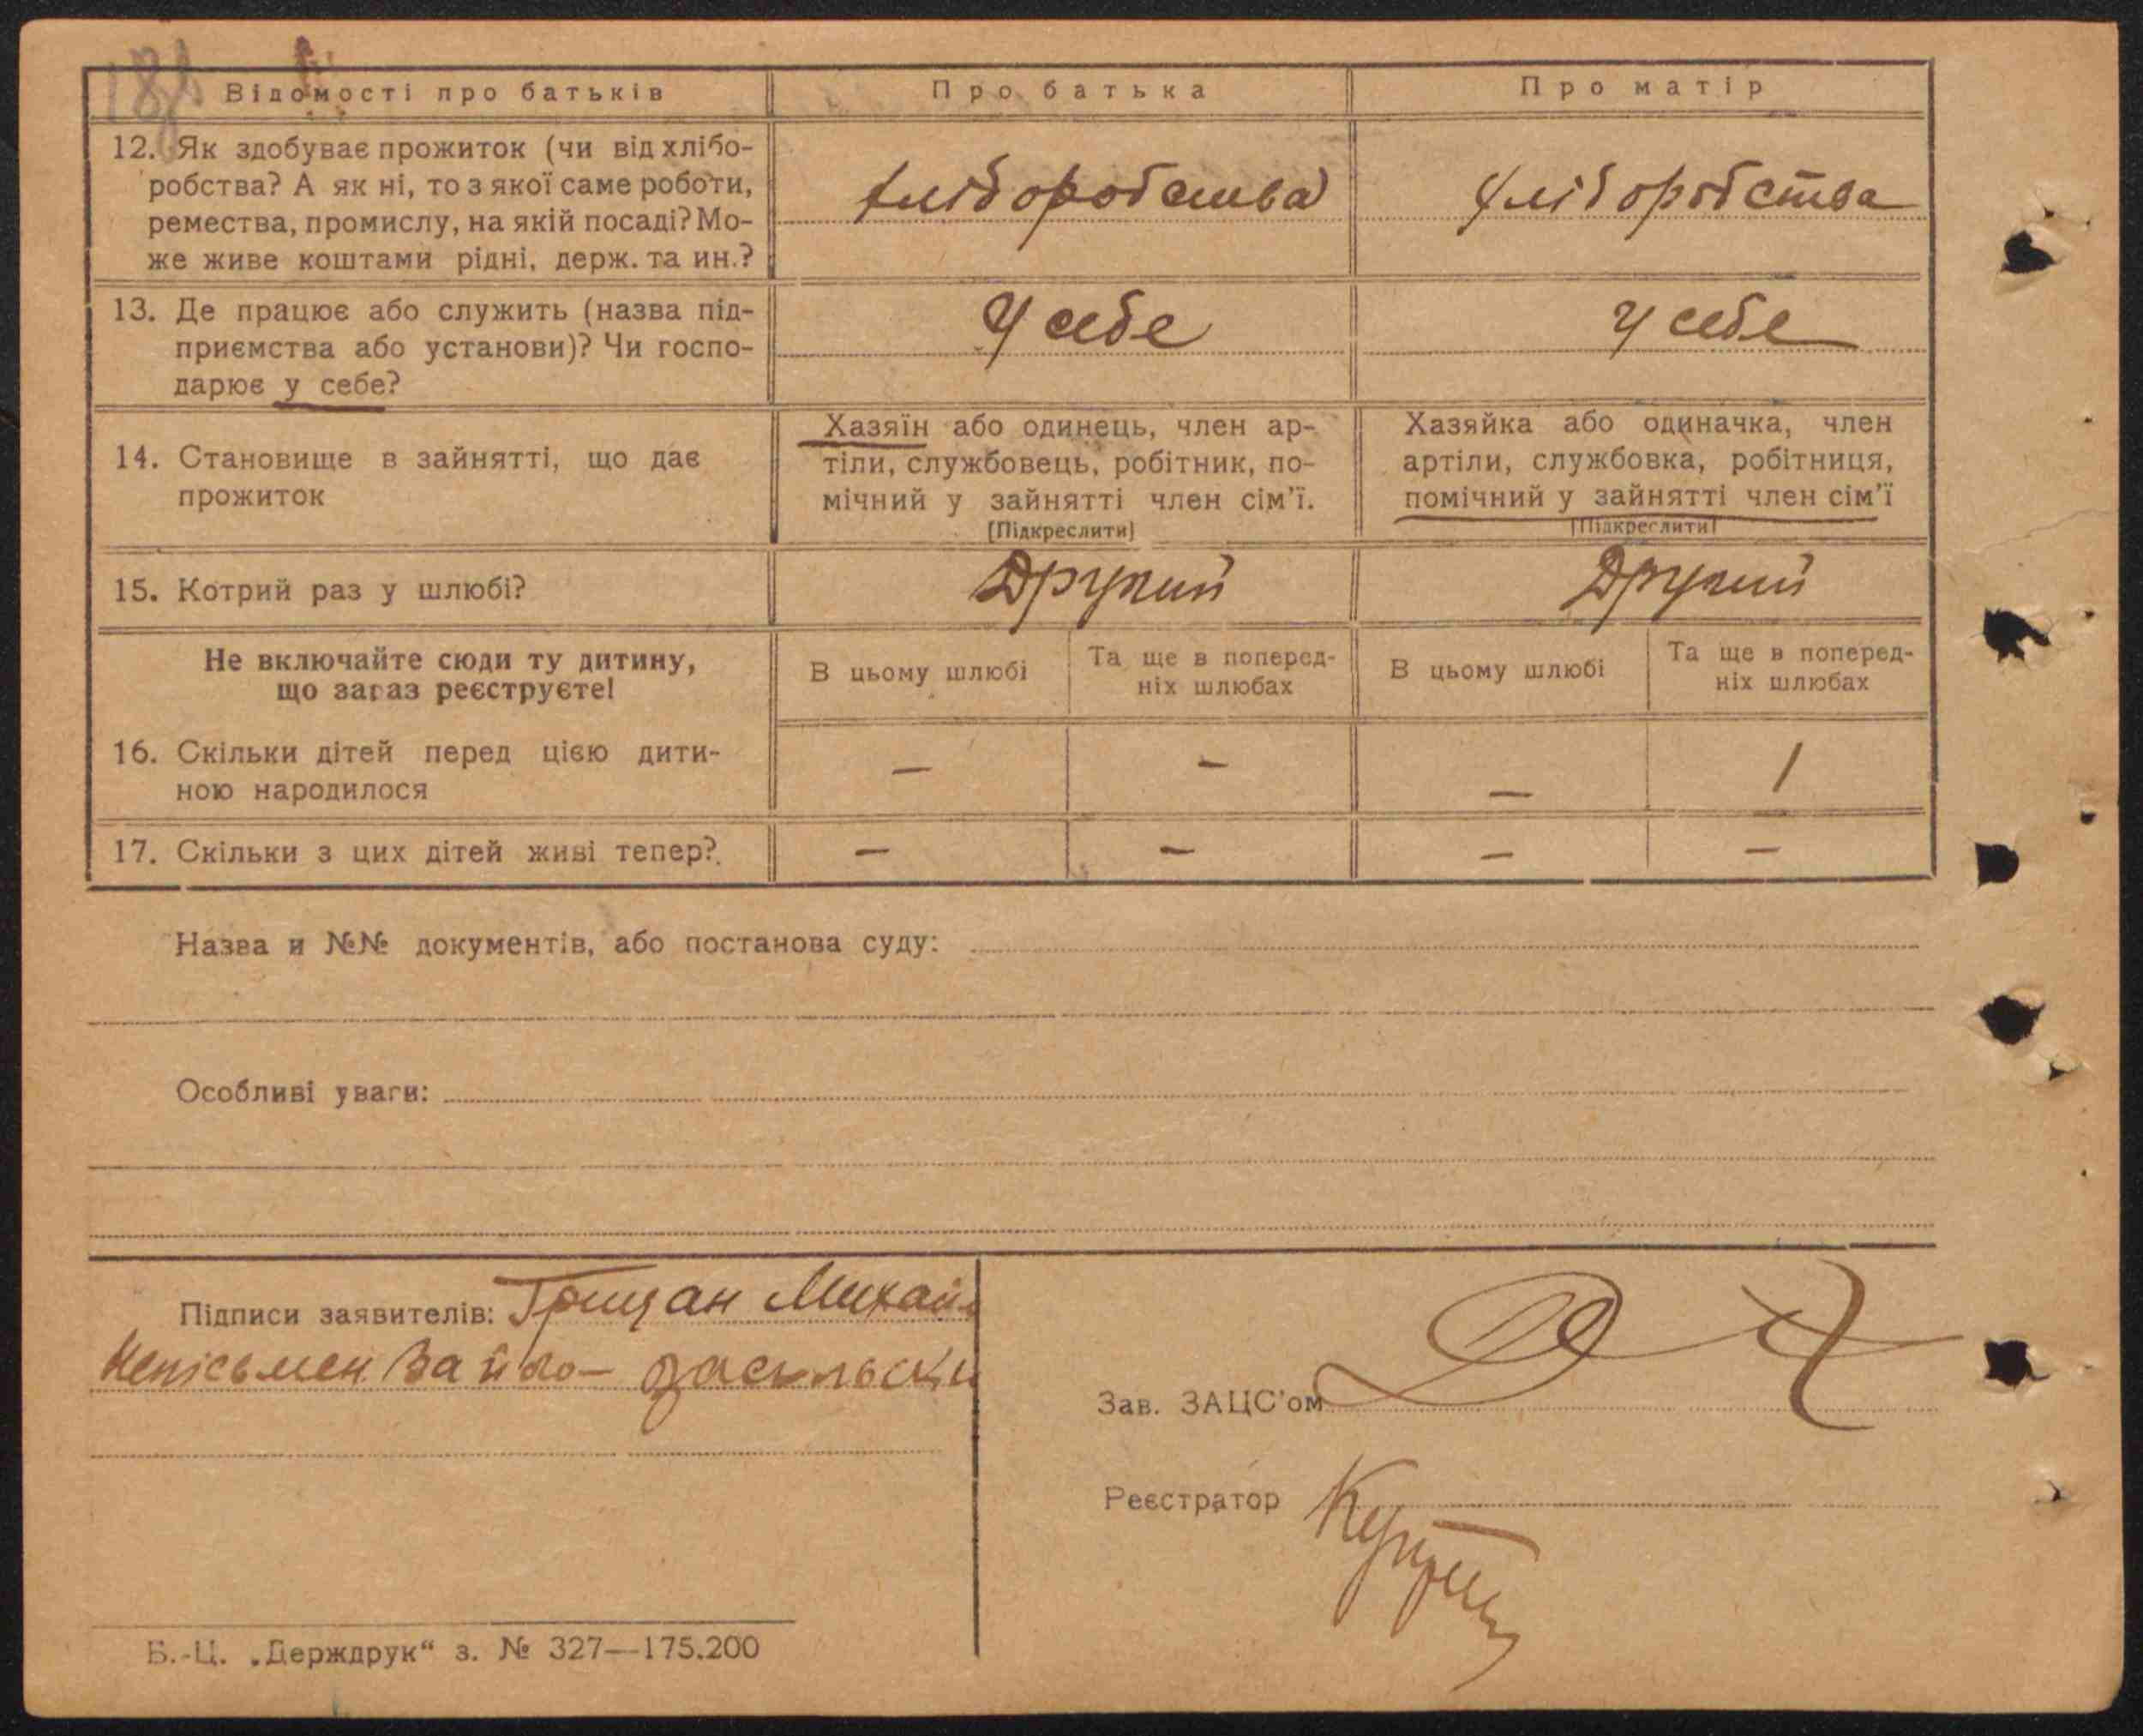 Відомості про батьків
Про батька
Про матір
12. Як здобуває прожиток (чи від хлібо-
робства? А як ні, то з якої саме роботи,
ремества, промислу, на якій посаді? Мо-
же живе коштами рідні, держ. та ин.?
хліборобства
хліборобства
13. Де працює або служить (назва під-
приємства або установи)? Чи госпо-
дарює у себе?
У себе
У себе
14. Становище в зайнятті, що дає
прожиток
Хазяїн або одинець, член ар-
тіли, службовець, робітник, по-
мічний у зайнятті член сім'ї.
[Підкреслити]
Хазяйка або одиначка, член
артіли, службовка, робітниця,
помічний у зайнятті член сім'ї
[Підкреслити]
15. Котрий раз у шлюбі?
Другий
Другий
Не включайте сюди ту дитину,
що зараз реєструєте!
В цьому шлюбі
Та ще в поперед-
ніх шлюбах
В цьому шлюбі
Та ще в поперед-
ніх шлюбах
16. Скільки дітей перед цією дити-
ною народилося
— — — 1
17. Скільки з цих дітей живі тепер?
— — — —
Назва и №№ документів, або постанова суду:
Особливі уваги:
Підписи заявителів: Грицан Михайл
Непісьмен за його
Зав. ЗАЦС'ом
Реєстратор
Б.-Ц. „Держдрук“ з. № 327—175.200